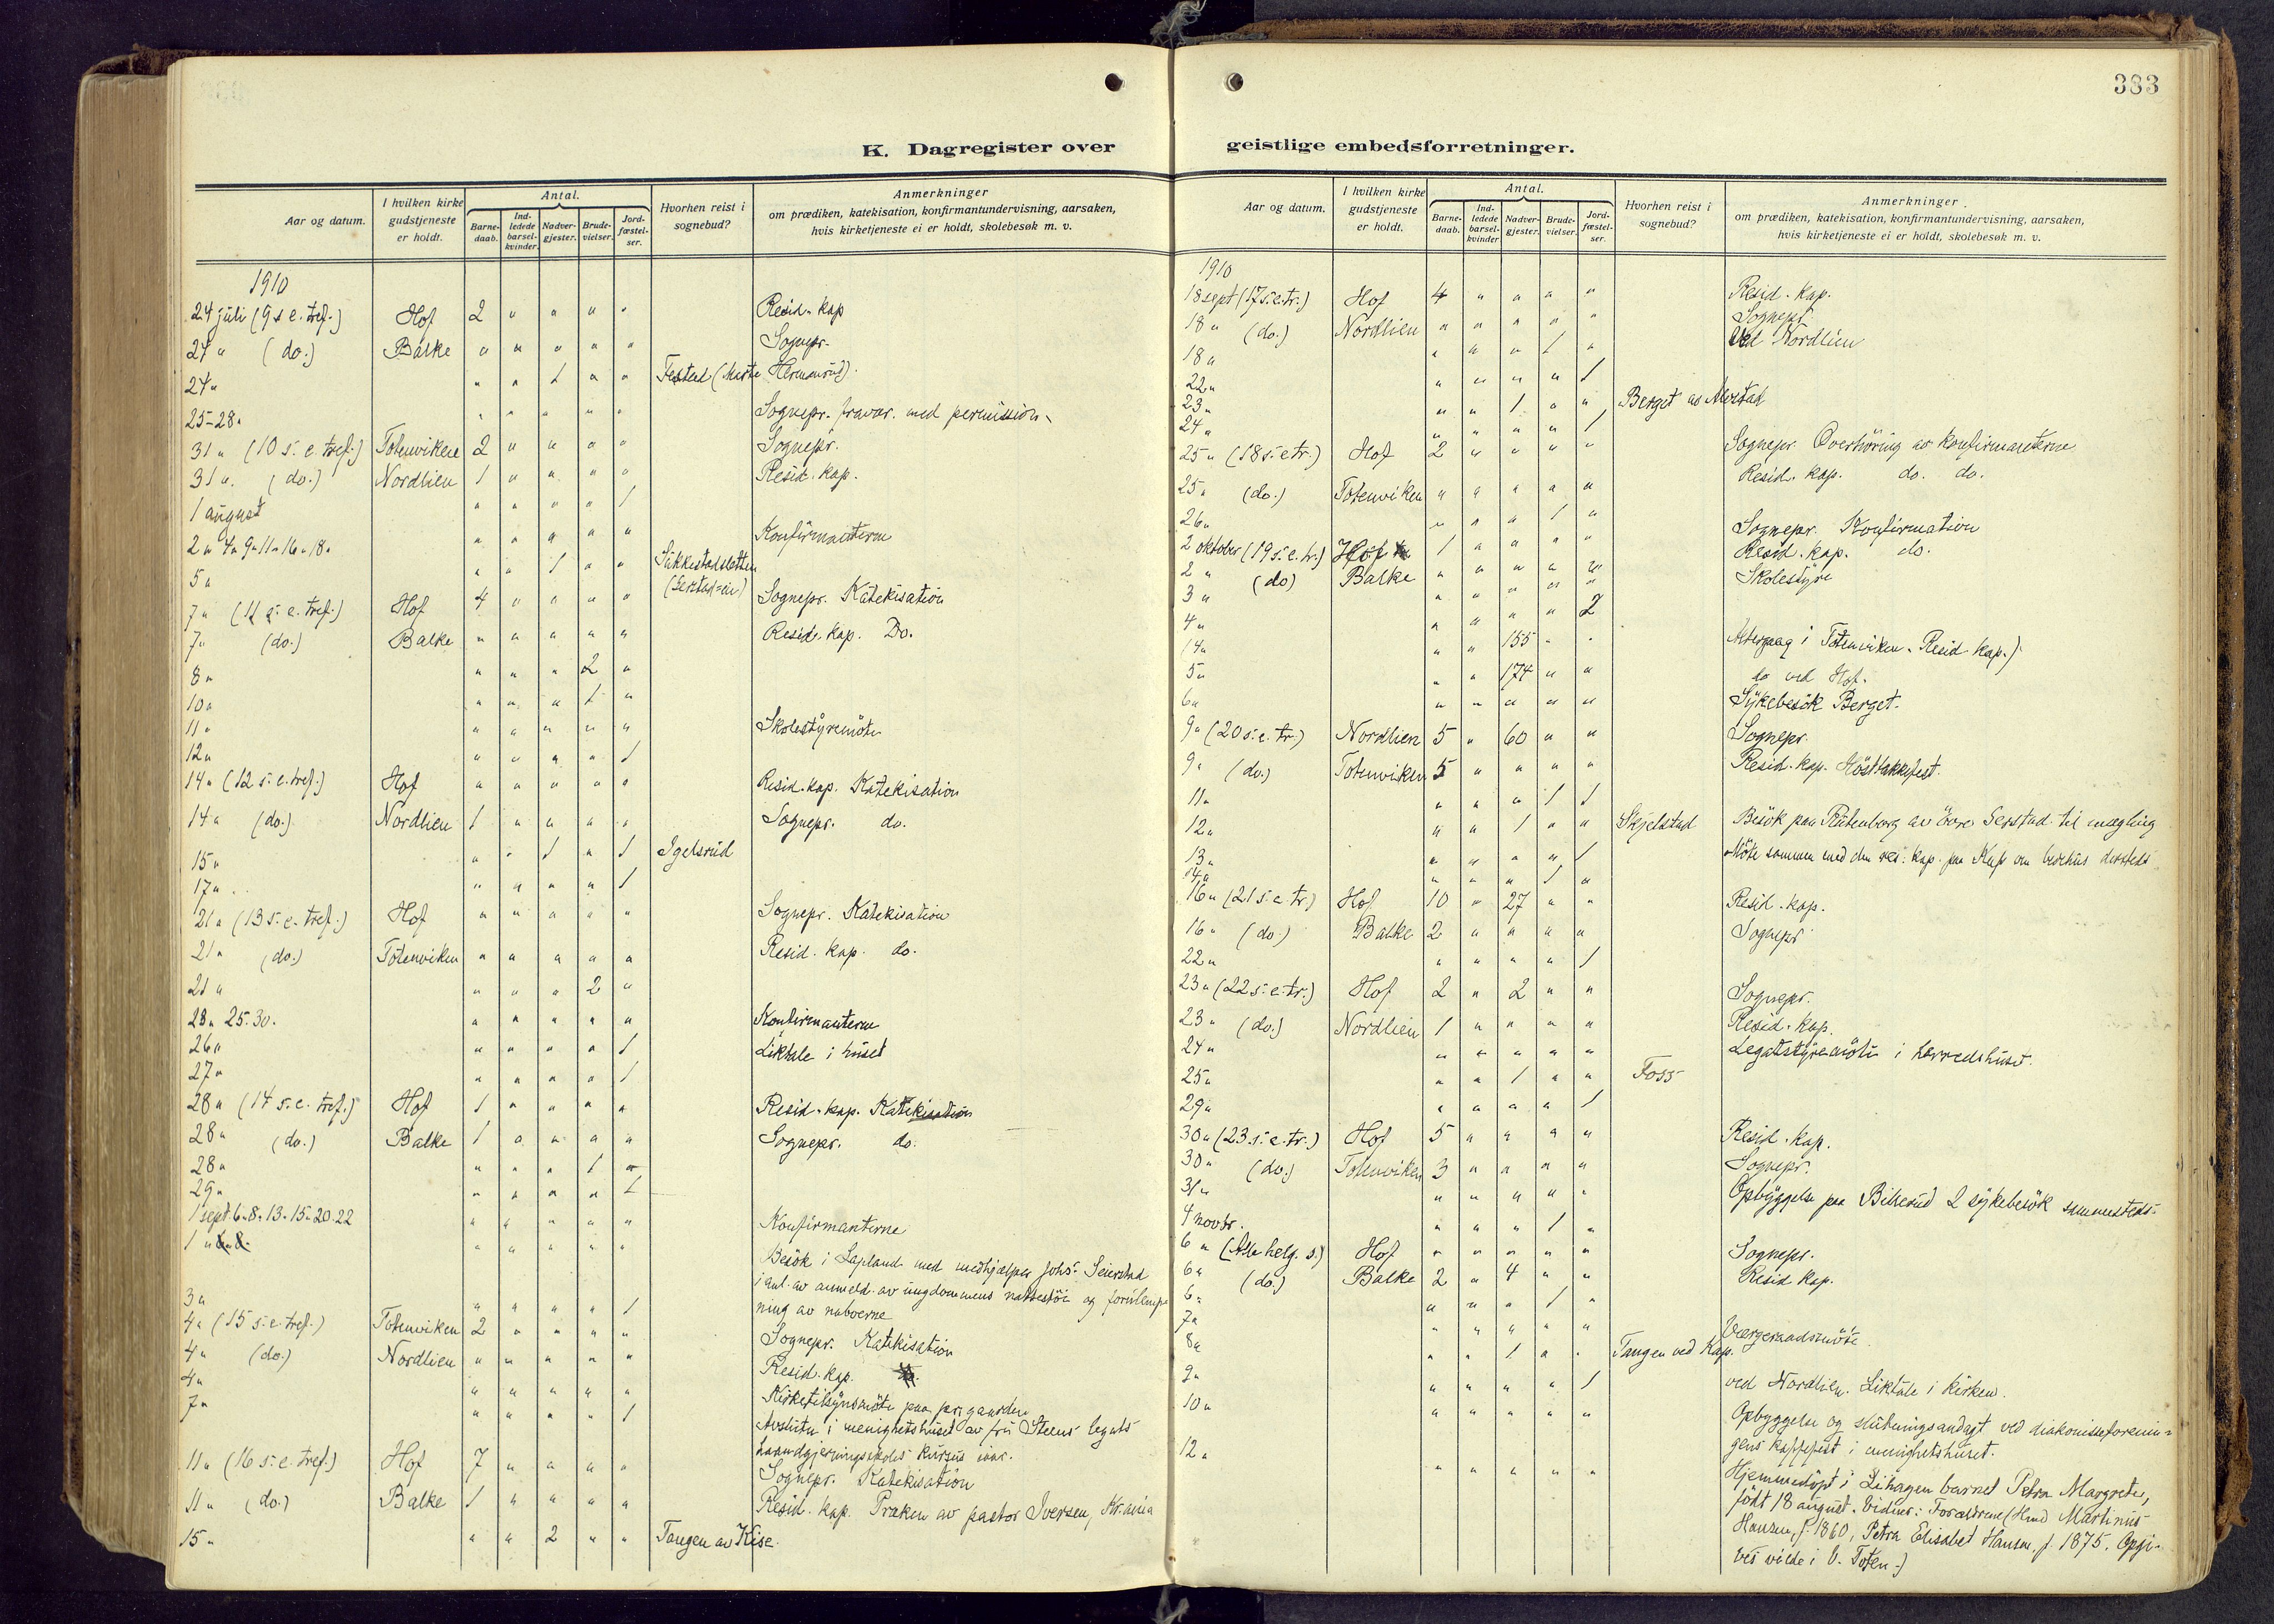 383
K. Dagregister over
Aar og datum.
I hvilken kirke gudstjeneste er holdt.
Antal.
Barne-daab.
Ind-ledede barsel-kvinder.
Nadver-gjester.
Brude-vielser.
Jord-fæstel-ser.
Hvorhen reist i sognebud?
Anmerkninger
om prædiken, katekisation, konfirmantundervisning, aarsaken,
hvis kirketjeneste ei er holdt, skolebesøk m. v.
1910
24 juli (9 s. e. tref.) Hof 2 " " " " Resid. kap
24 " (do.) Balke " " " " " Sognepr.
24 " " " 1 " " Festad (Marte Hermanrud).
25-28 " " " " " " Sognepr. fravær. med permission.
31 " (10 s. e. tref.) Totenviken 2 " " " " Sognepr.
31 " (do.) Nordlien 1 " " " " Resid. kap.
1 august " " " " 1
2 " 4 " 9 " 11 " 16 " 18 " " " " " " Konfirmanterne
5 " " " 1 " " Sukkestadsletten
7 " (11 s. e. tref.) Hof 4 " " " " Sognepr. Katekisation
7 " (do.) Balke " " " " " Resid. kap. Do.
8 " " " " 2 "
10 " " " " 1 "
11 " " " " " " Skolestyremöte
12 " " " " " 1
14 " (12 s. e. tref.) Hof " " " " " Resid. kap. Katekisation
14 " (do.) Nordlien 1 " " " " Sognepr. do.
15 " " " 1 " 1 Igelsrud
17 " " " " " 1
21 " (13 s. e. tref.) Hof " " " " " Sognepr. Katekisation
21 " (do.) Totenviken " " " " " Resid. kap. do.
21 " " " " 2 "
23 " 25. 30. " " " " " Konfirmanterne
26 " " " " " 1 Liktale i huset
27 " " " " " 1
28 " (14 s. e. tref.) Hof 1 " " " " Resid. kap. Katekisation
28 " (do.) Balke 1 " " " " Sognepr. do.
28 " " " " 1 "
29 " " " " " 1
1 sept. 6 " 8 " 13 " 15 " 20. 22 " " " " " Konfirmanterne
1 " " " " " " Besök i Lapland med medhjælper Johs. Seierstad
i anl. av anmeld. av ungdommens
3 " " " " " 1 ning av naboerne
4 " (15 s. e. tref.) Totenviken 2 " " " " Sognepr. Katekisation
4 " (do.) Nordlien " " " " " Resid. kap.
4 " " " " " " Kirketilsynsmöte paa pr.gaarden
7 " " " " " 1 Avslutn i menighetshuset av fru Steens legats
haandgjerningsskoles kursus
11 " (16 s. e. tref.) Hof 7 " " " " Sognepr. Katekisation
11 " (do.) Balke 1 " " " " Resid. kap. Præken av pastor Iversen, Kr.ania
15 " " " 2 " " Tangen av Kise.
geistlige embedsforretninger.
Aar og datum.
I hvilken kirke gudstjeneste er holdt.
Antal.
Barne-daab.
Ind-ledede barsel-kvinder
Nadver-gjester.
Brude-vielser.
Jord-fæstel-ser.
Hvorhen reist i sognebud?
Anmerkninger.
om prædiken, katekisation, konfirmantundervisning, aarsaken,
hvis kirketjeneste ei er holdt, skolebesøk m. v.
1910
18 sept (17 s. e. tr.) Hof 4 " " " " Resid. kap.
18 " (do.) Nordlien " " " " " Sognepr.
18 " " " " 1 " Ved Nordlien
22 " " " " " 1
23 " " " 1 " " Berget av Alfstad
24 " " " " " 1
25 " (18 s. e. tr.) Hof 2 " " " " Sognepr. Overhöring av konfirmanterne
25 " (do.) Totenviken " " " " " Resid. kap. do. do.
26 " " " " 1 "
2 oktober (19 s. e. tr.) Hof 1 " " " " Sognepr. Konfirmation
2 " (do) Balke " " " " " Resid. kap. do.
3 " " " " " " Skolestyre
4 " " " " " 2
" " 155 " " Altergang i Totenviken. Resid. kap.)
5 " " " 174 " " do ved Hof.
6 " " " " " " Sykebesök Berget.
9 " (20 s. e. tr.) Nordlien 5 " 60 " " Sognepr.
9 " (do.) Totenviken 5 " " " " Resid. kap. Hösttakkefest.
11 " " " " 1 1
12 " " " 1 " " Skjelstad Besök paa Rutenborg av övre Seirstad til mægling
13 " " " " " 1 Möte sammen med den res. kap. paa Kap om bedehus dersteds
14 " " " " 1 "
16 " (21 s. e. tr.) Hof 10 " 27 " " Resid. kap.
16 " (do.) Balke 2 " " " " Sognepr
22 " " " " " 1
23 " (22 s. e. tr.) Hof 2 " 2 " " Sognepr.
23 " (do.) Nordlien 1 " " " " Resid. kap.
24 " " " " " " Legatstyremöte i herredshuset.
25 " " " 1 " " Foss
29 " " " " " 1
30 " (23. s. e. tr.) Hof 5 " " " " Resid. kap.
30 " (do.) Totenviken 3 " " " " Sognepr.
31 " " " " " " Opbyggelse paa Bilserud 2 sykebesök sammesteds.
4 novbr. " " " 1 "
6 " (Alle helg. s.) Hof " " " " " Sognepr.
6 " (do.) Balke 2 " 4 " " Resid. kap.
6 " " " " 1 "
7 " " " " " " Værgeraadsmöte.
8 " " " 1 " " Tangen ved Kap.
9 " " " " " 1 ved Nordlien. Liktale i kirken.
10 " " " " " " Opbyggelse og slutningsandagt ved diakonisseforenin-
gens kaffefest i menighetshuset.
12 " " " " " " Hjemmedöpt i Lihagen barnet Petra Margrete,
födt 18 august. Vidner: Forældrene (Hmd Martinus
Hansen, f. 1860, Petra Elisabet Hansen, f. 1875. Opgi-
ves viede i V. Toten.)